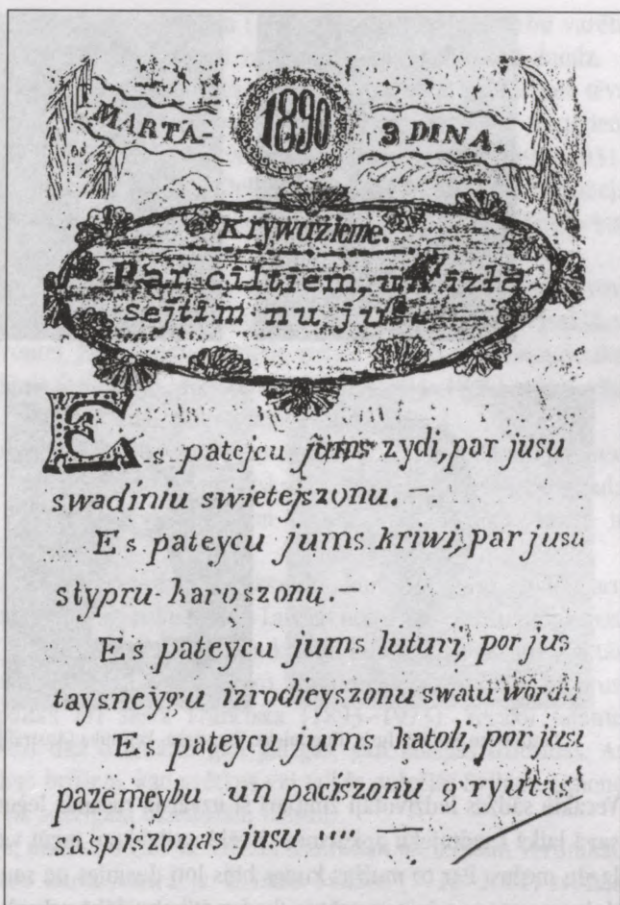 MARTA-
1890
3 DINA.
Krywuzieme.
Par ciltiem, un izla
sejtim nu ju
Es patejcu jums zydi, par jusu
swadiniu swietejszonu.—
Es pateycu jums kriwi, par jusu
stypru karoszonu.—
Es pateycu jums luturi, por jus
taysneygu izrodieyszonu swatu wordu
Es pateycu jums katoli, por jusu
pazemeybu un paciszonu gryutas
saspiszonas jusu """ —